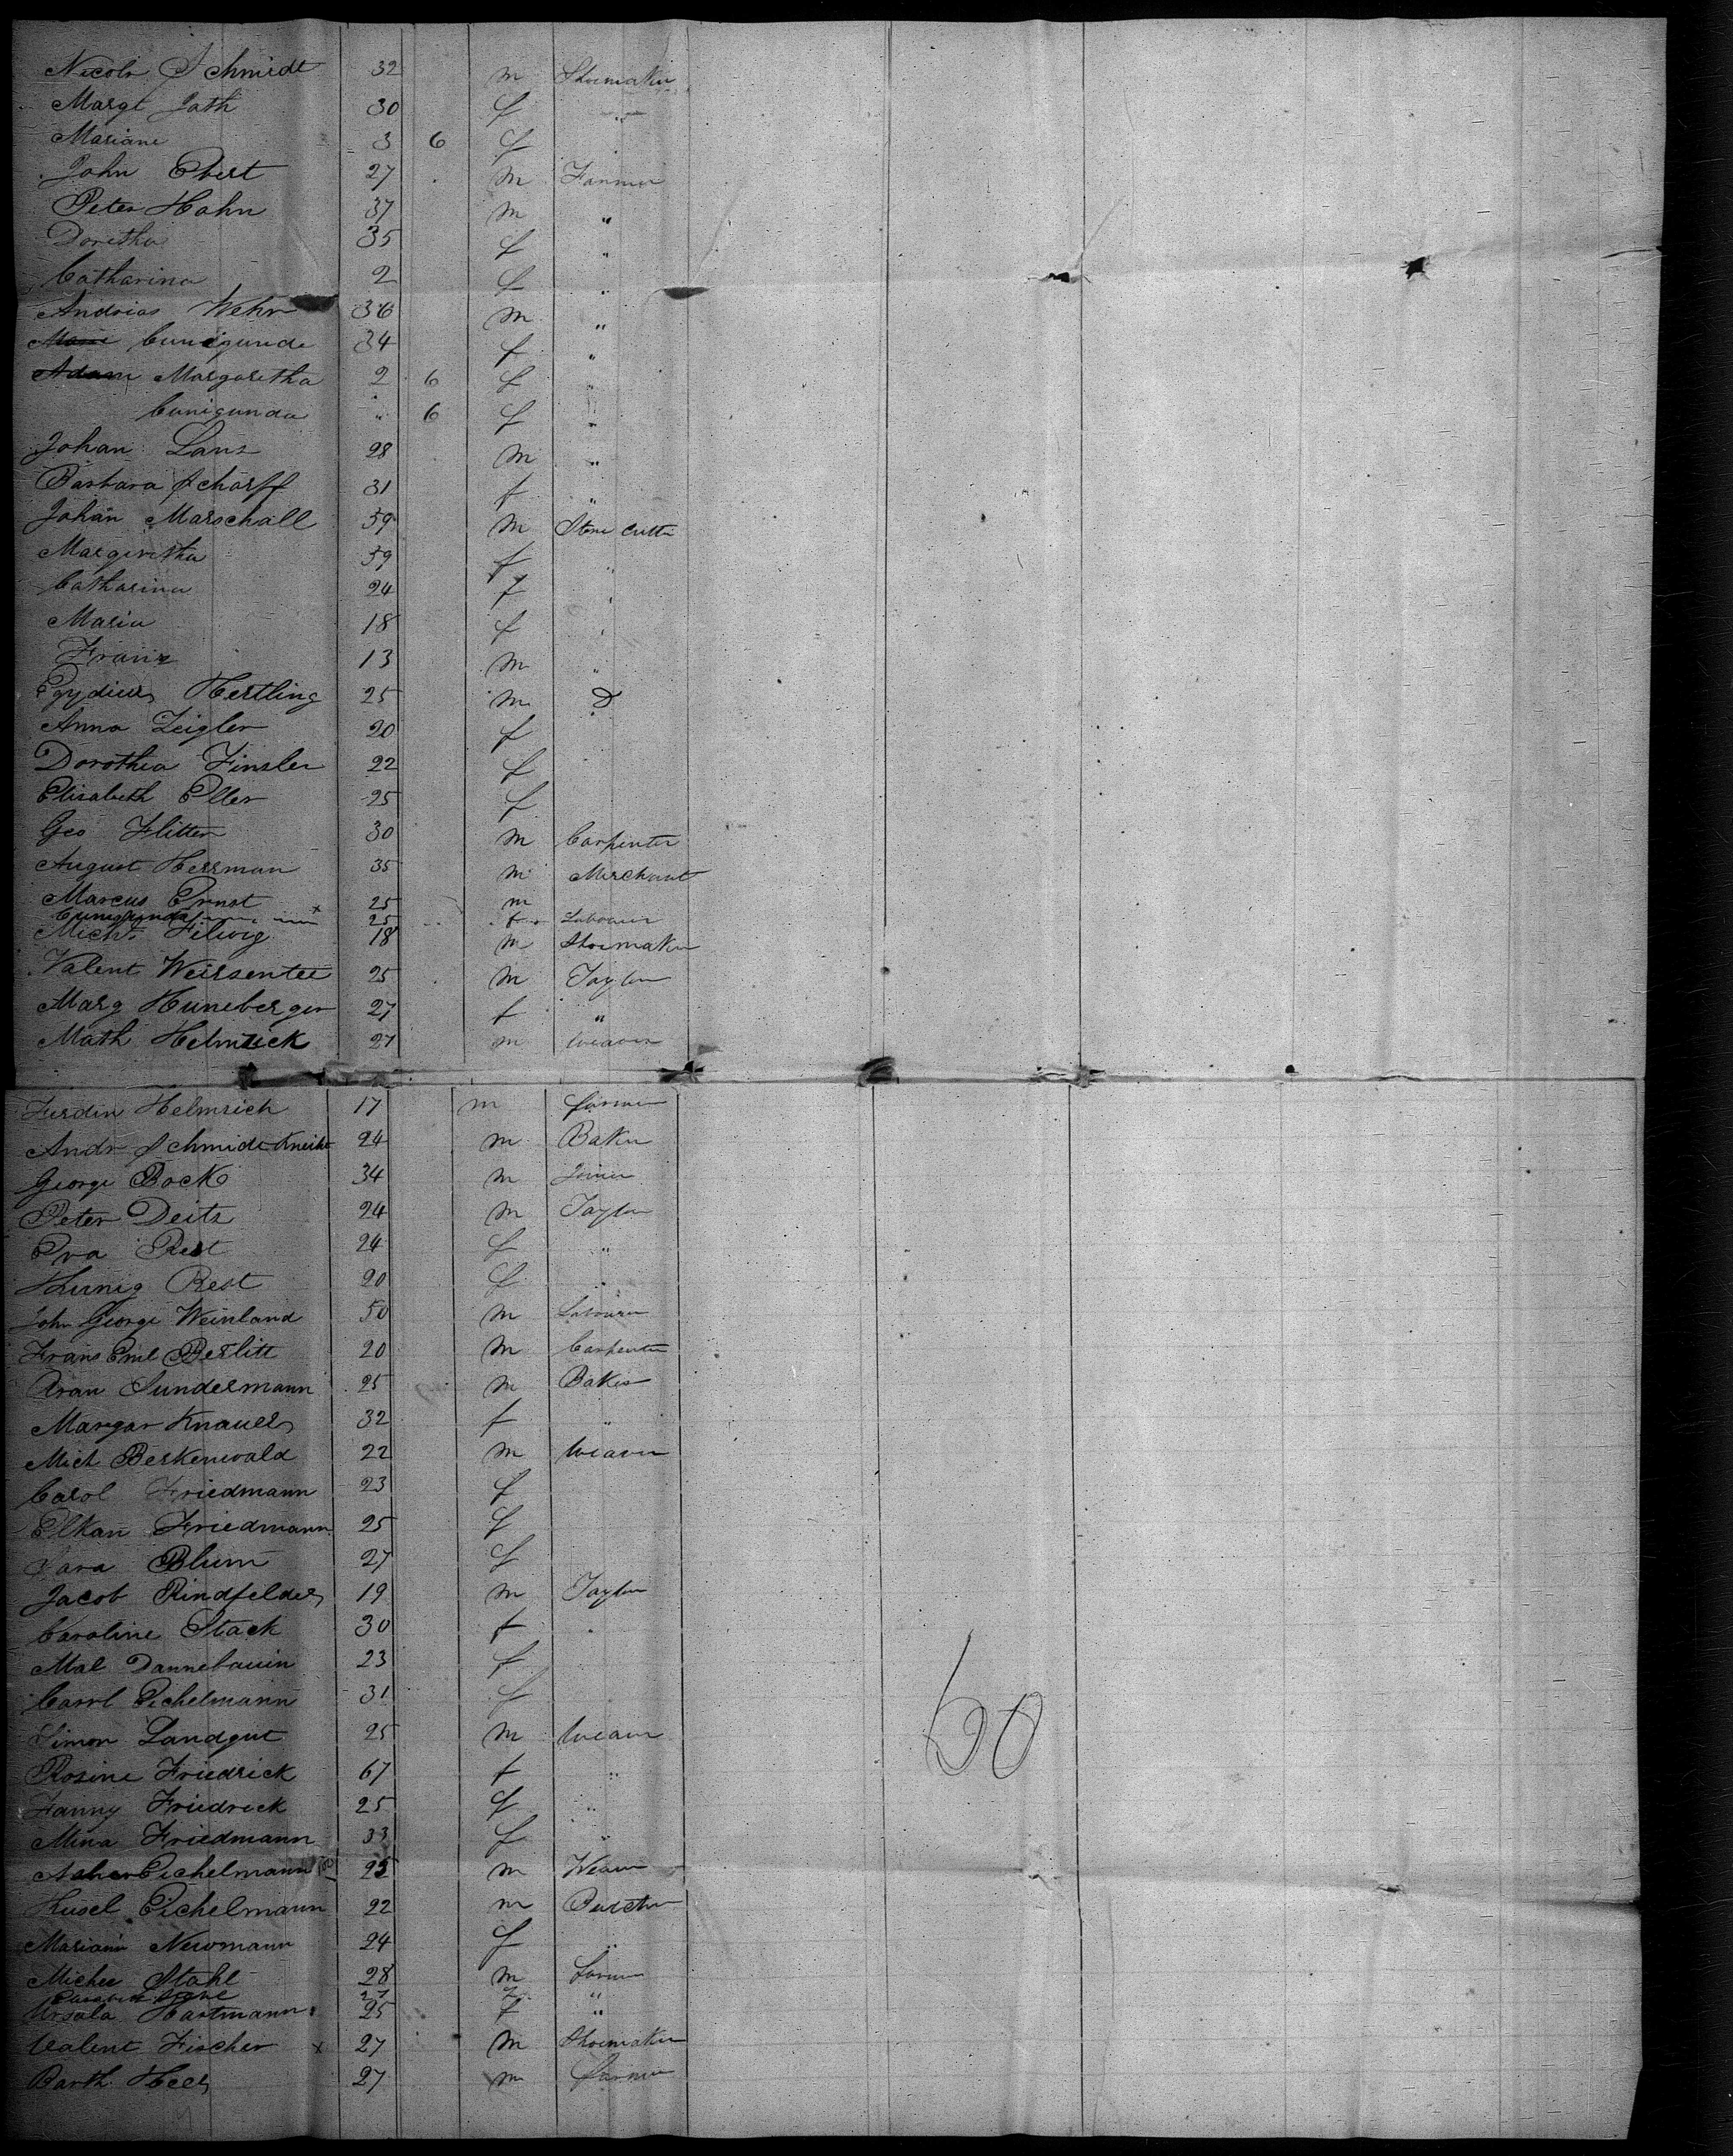 Nicols Schmidt 32 m Shoemaker
Margt Jath 30 f "
Mariane 3 6 f
John Ebert 27 m Farmer
Peter Hahn 37 m "
Doretha 35 f "
Catharina 2 f "
Andrias Wehr 36 m "
Cunigunde 34 f "
Adam Margaretha 2 6 f "
Cunigunda " 6 f "
Johan Lans 28 m "
Barbara Scharff 31 f "
Johan Marschall 59 m Stone cutte
Margiretha 59 f "
Catharina 24 f "
Maria 18 f "
Franz 13 m "
Egydius Hertling 25 m D
Anna Zeigler 20 f
Dorothea Finsler 22 f
Elisabeth Eller 25 f
Geo Flitter 30 m Carpenter
August Herrman 35 m Merchant
Marcus Ernst 25 m
Cunigunda 25 f Labourer
Michl Filwig 18 m Shoemaker
Valent Weirsentee 25 m Taylor
Marg Huneberger 27 f "
Math Helmrick 27 m Weaver
Ferdin Helmrich 17 m farmer
Andr Schmidt Kneibt 24 m Baker
George Bock 34 m Joiner
Peter Deitz 24 m Taylor
Eva Rest 24 f "
Rest 20 f "
John George Weinland 50 m Labourer
Frans Emil Berlitt 20 m Carpenter
Sundermann 25 m Baker
Margar Knauer 32 f "
Mich Berkenwald 22 m Weaver
Carol Friedmann 23 f
Elkan Friedmann 25 f
Sara Blum 27 f
Jacob Rindfelder 19 m Taylor
Caroline Stack 30 f
Mal Dannebaum 23 f
Carol Eichelmann 31 f
Simon Landgut 25 m Weaver
Rosine Friedrick 67 f "
Fanny Friedrick 25 f "
Mina Friedmann 33 f "
Eichelmann 25 m Weaver
Husel Eichelmann 22 m Butcher
Mariann Newmann 24 f "
Michee Stahl 28 m farmer
27 f "
Ursala Hartmann 25 f "
Valent Fischer x 27 m Shoemaker
Barth Heer 27 m farmer
60